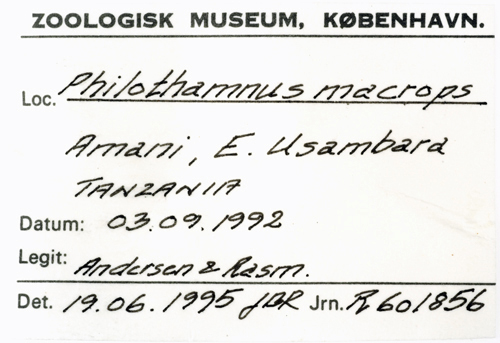 ZOOLOGISK MUSEUM, KØBENHAVN.
Loc. Philothamnus macrops
Amani, E. Usambara
TANZANIA
Datum: 03.09.1992
Legit: Andersen & Rasm.
Det. 19.06.1995 JBR Jrn. R 601856